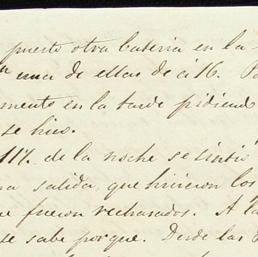 puesto otra bateria en la
una de ellas de á 16.
mento en la tarde pidiendo
se hizo.
11½ de la noche se sintió
salida, que hicieron los
fueron rechasados. A la
se sabe porque. Desde las